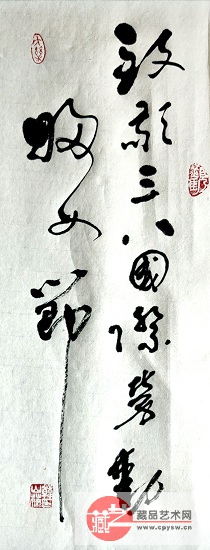 致敬三八國際勞動
婦女節
藏品艺术网
www.cpysw.cn